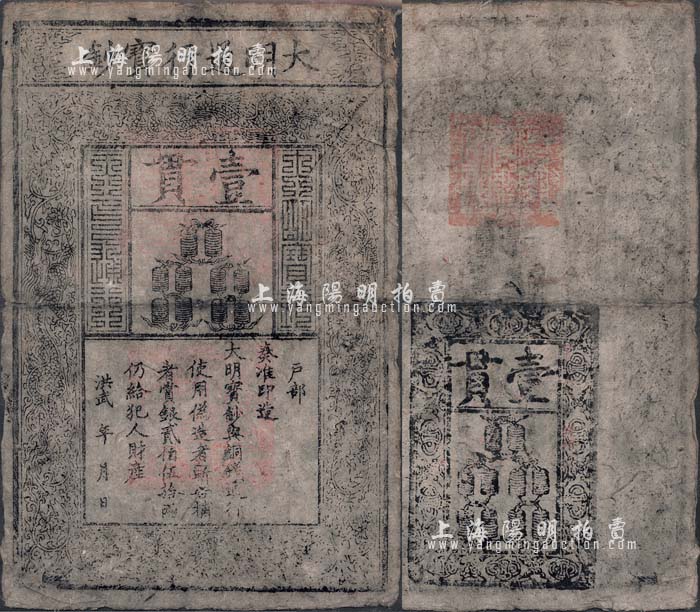 大明通行寶鈔
上海陽明拍賣
www.yangmingauction.com
壹貫
大明寶鈔
天下通行
上海陽明拍賣
www.yangmingauction.com
戶部
奏准印造
大明寶鈔與銅錢通行
使用偽造者斬告捕
者賞銀貳佰伍拾兩
仍給犯人財產
洪武 年 月 日
壹貫
上海陽明拍賣
www.yangmingauction.com